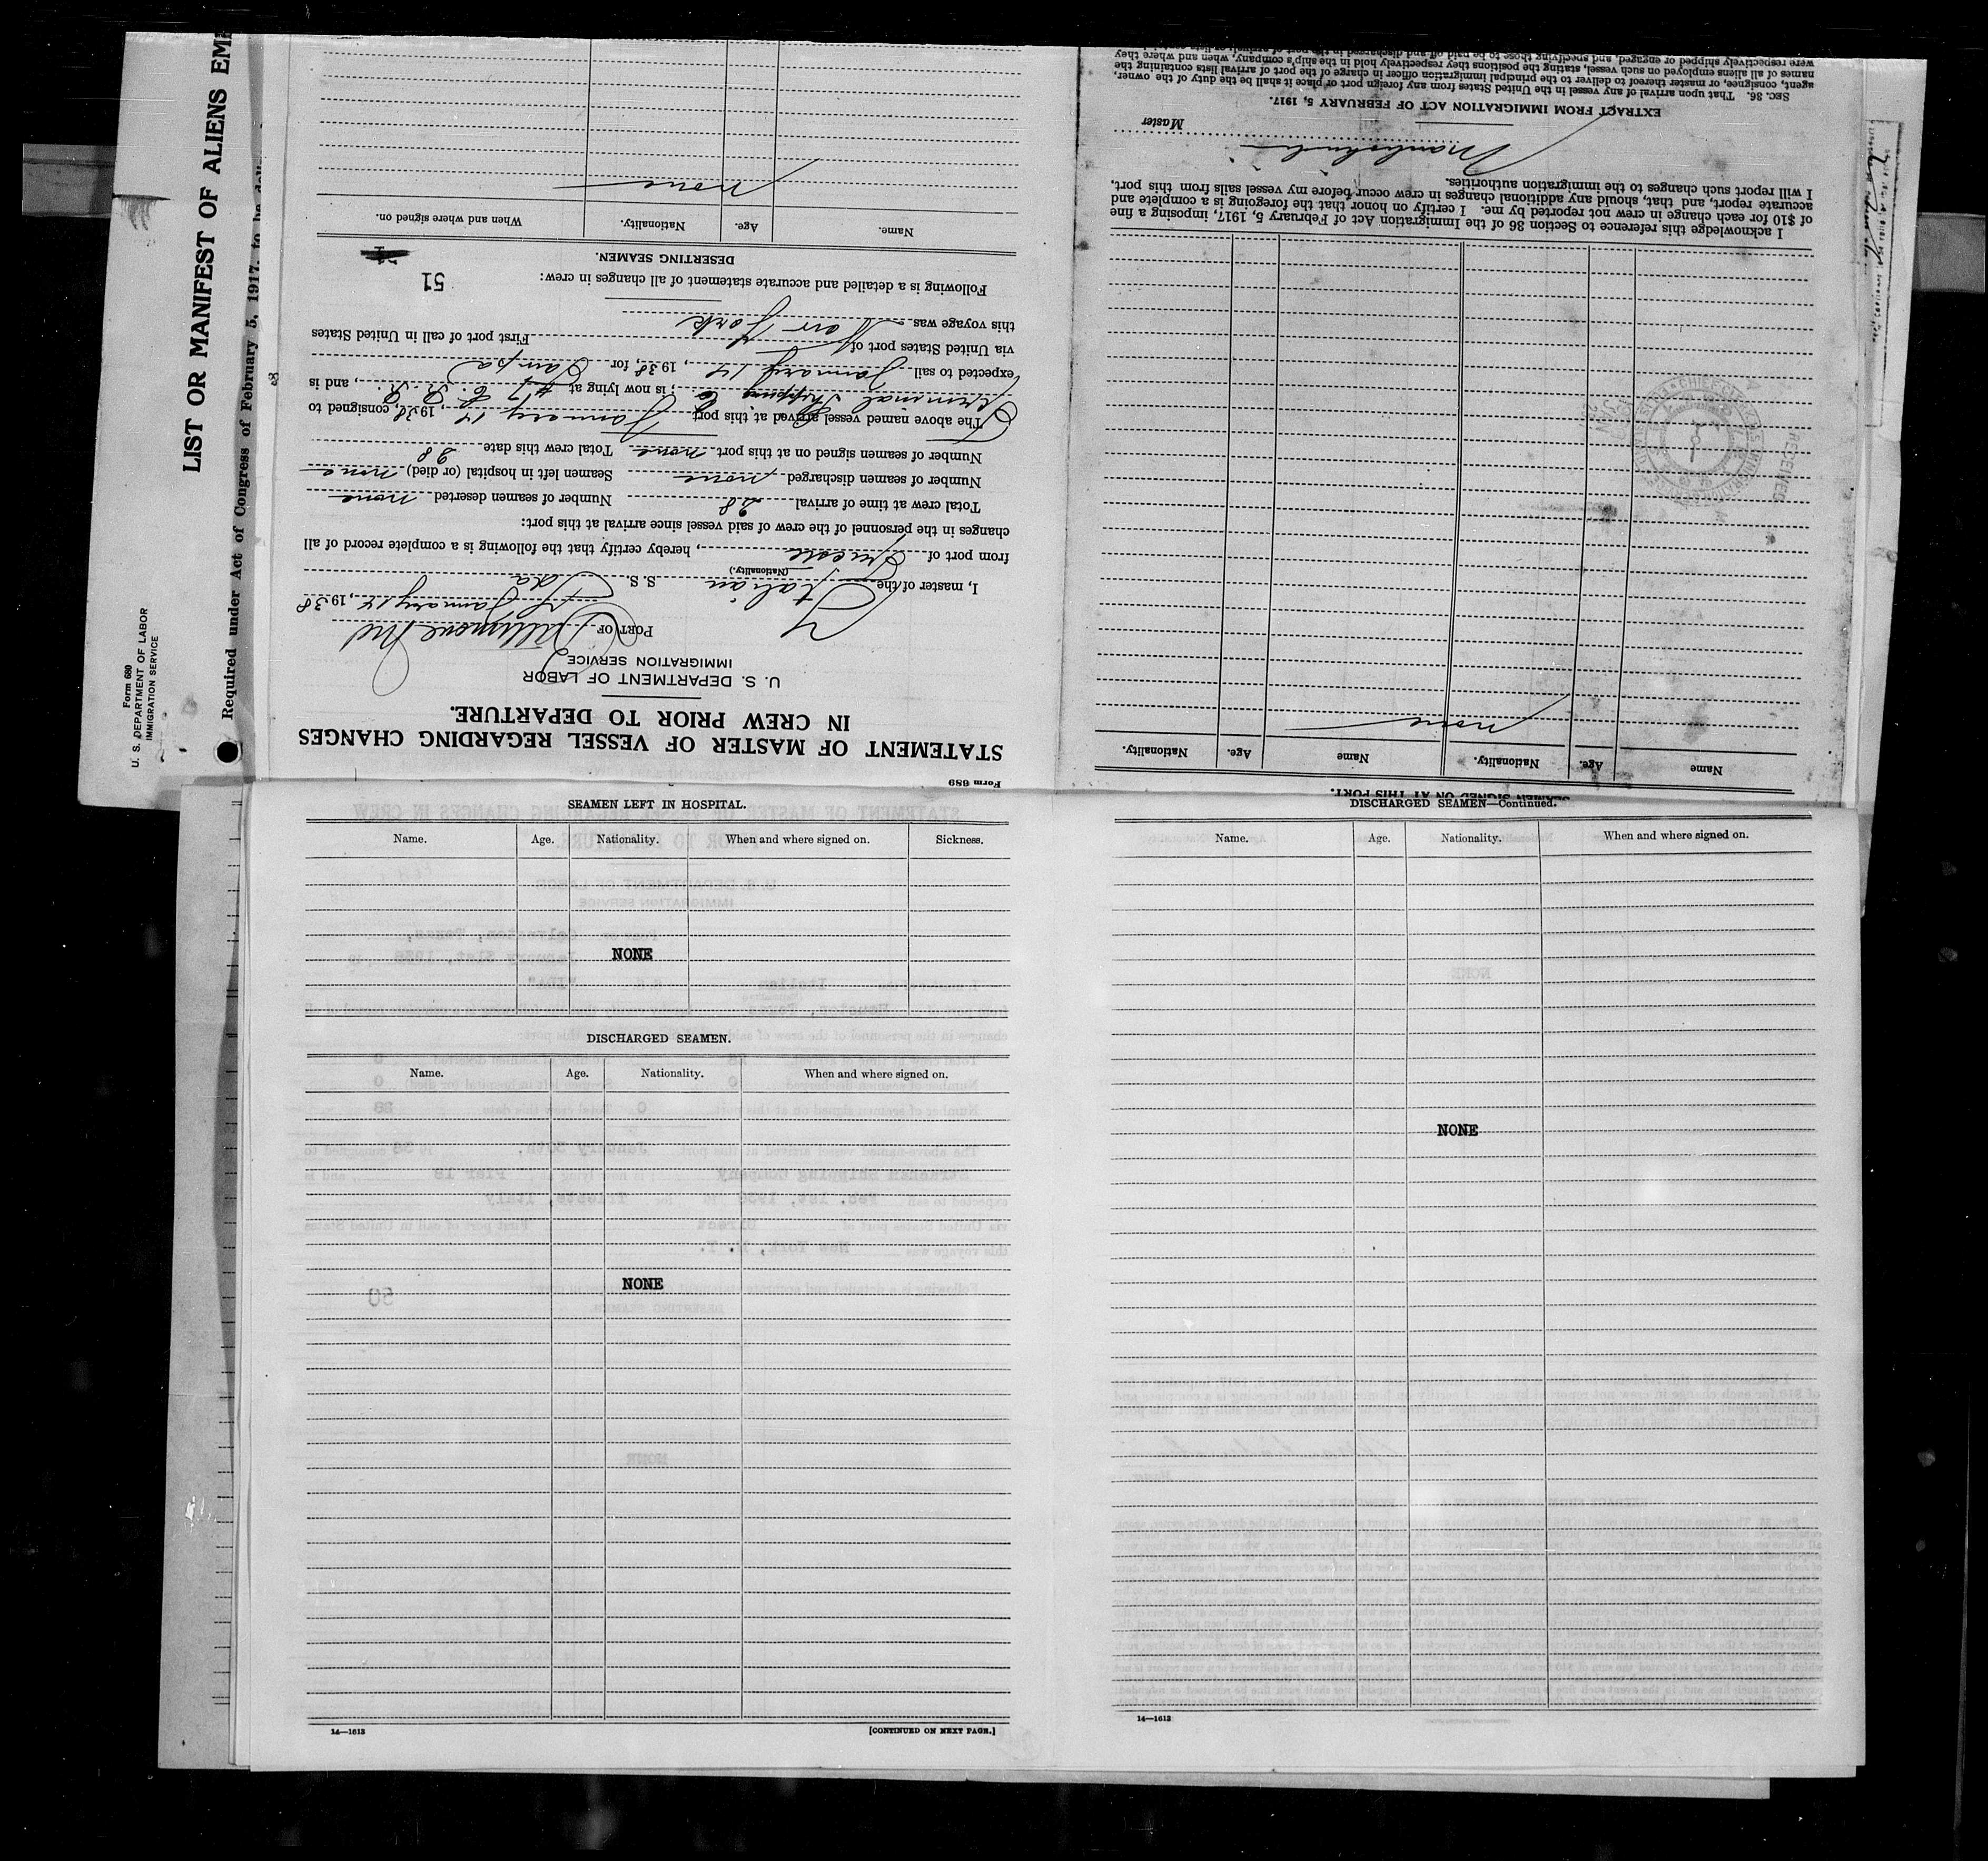 LIST OR MANIFEST OF ALIENS EM
Required under Act of Congress of February 5, 1917, to be
Form 680
U. S. DEPARTMENT OF LABOR
IMMIGRATION SERVICE
Form 689
STATEMENT OF MASTER OF VESSEL REGARDING CHANGES
IN CREW PRIOR TO DEPARTURE.
U. S. DEPARTMENT OF LABOR
IMMIGRATION SERVICE
PORT OF Baltimore Md
January 14, 1938
I, master of the Italian S. S. Ida
(Nationality.)
from port of Trieste, hereby certify that the following is a complete record of all
changes in the personnel of the crew of said vessel since arrival at this port:
Total crew at time of arrival 38 Number of seamen deserted none
Number of seamen discharged none Seamen left in hospital (or died) none
Number of seamen signed on at this port none Total crew this date 38
The above named vessel arrived at this port January 14, 1938, consigned to
Terminal Shipping Co; is now lying at #7 B. & O. R. R., and is
expected to sail January 14, 1938, for Tampa
via United States port of First port of call in United States
this voyage was New York
Following is a detailed and accurate statement of all changes in crew:
51
DESERTING SEAMEN.
Name. Age. Nationality. When and where signed on.
none
SEAMEN SIGNED ON AT THIS PORT.
Name Age. Nationality. Name Age. Nationality.
none
I acknowledge this reference to Section 36 of the Immigration Act of February 5, 1917, imposing a fine
of $10 for each change in crew not reported by me. I certify on honor that the foregoing is a complete and
accurate report, and that, should any additional changes in crew occur before my vessel sails from this port,
I will report such changes to the immigration authorities.
Master
EXTRACT FROM IMMIGRATION ACT OF FEBRUARY 5, 1917.
SEC. 36. That upon arrival of any vessel in the United States from any foreign port or place it shall be the duty of the owner,
agent, consignee, or master thereof to deliver to the principal immigration officer in charge of the port of arrival lists containing the
names of all aliens employed on such vessel, stating the positions they respectively hold in the ship's company, when and where they
were respectively shipped or engaged, and specifying those to be paid off and discharged in the port of arrival
RECEIVED
SEAMEN LEFT IN HOSPITAL.
Name. Age. Nationality. When and where signed on. Sickness.
NONE
DISCHARGED SEAMEN.
Name. Age. Nationality. When and where signed on.
NONE
14—1613 [CONTINUED ON NEXT PAGE.]
DISCHARGED SEAMEN—Continued.
Name. Age. Nationality. When and where signed on.
NONE
14—1613